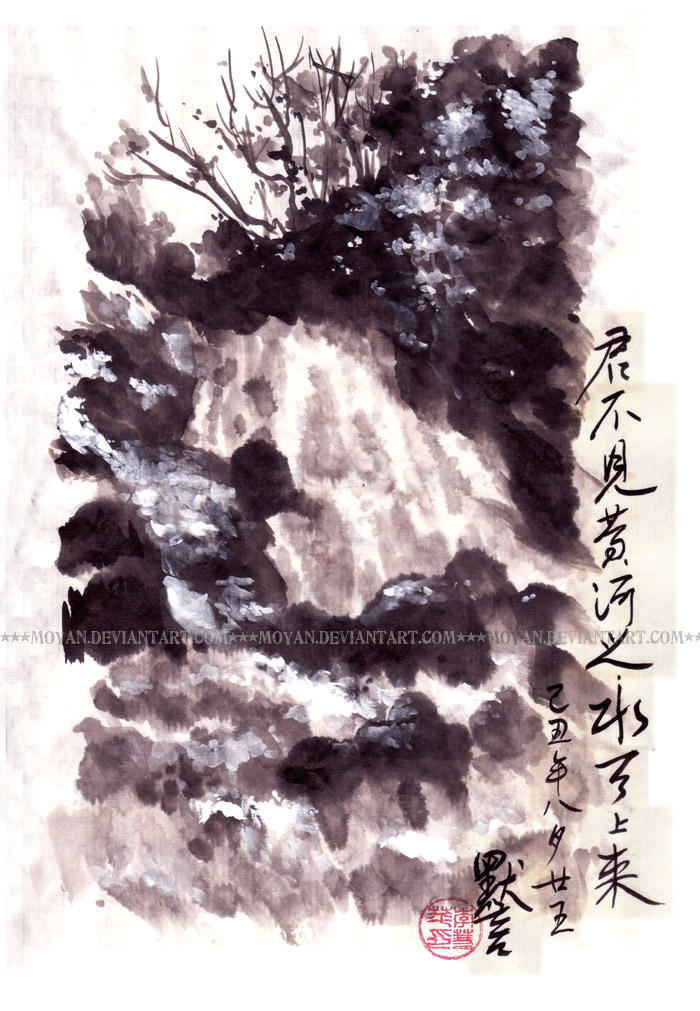 君不見黄河之水天上来
己丑年八月廿五
默言
***MOYAN.DEVIANTART.COM***MOYAN.DEVIANTART.COM***MOYAN.DEVIANTART.COM**